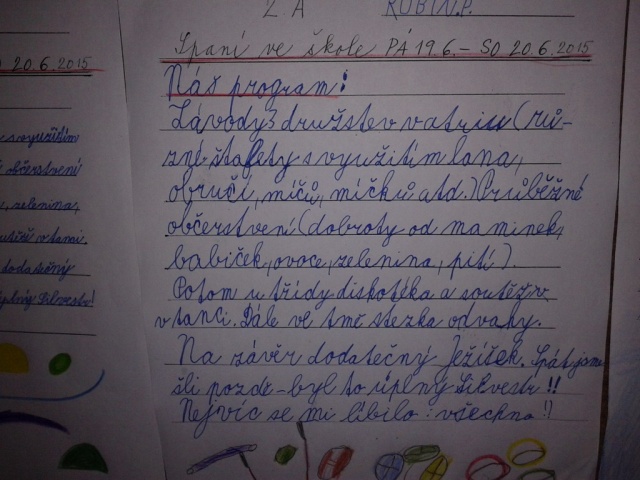 20.6.2015
s využitím
občerstvení
zelenina,
v tanci.
dodatečný
úplný Silvestr!
2.A ROBIN P.
Spaní ve škole PÁ 19.6. – SO 20.6.2015
Náš program:
Závody 3 družstev v atriu (rů-
zné štafety s využitím lana,
obručí, míčů, míčků atd.) Průběžné
občerstvení (dobroty od maminek,
babiček, ovoce, zelenina, pití).
Potom u třídy diskotéka a soutěž v
v tanci. Dále ve tmě stezka odvahy.
Na závěr dodatečný Ježíšek. Spát jsme
šli pozdě – byl to úplný Silvestr!!
Nejvíc se mi líbilo: všechno!